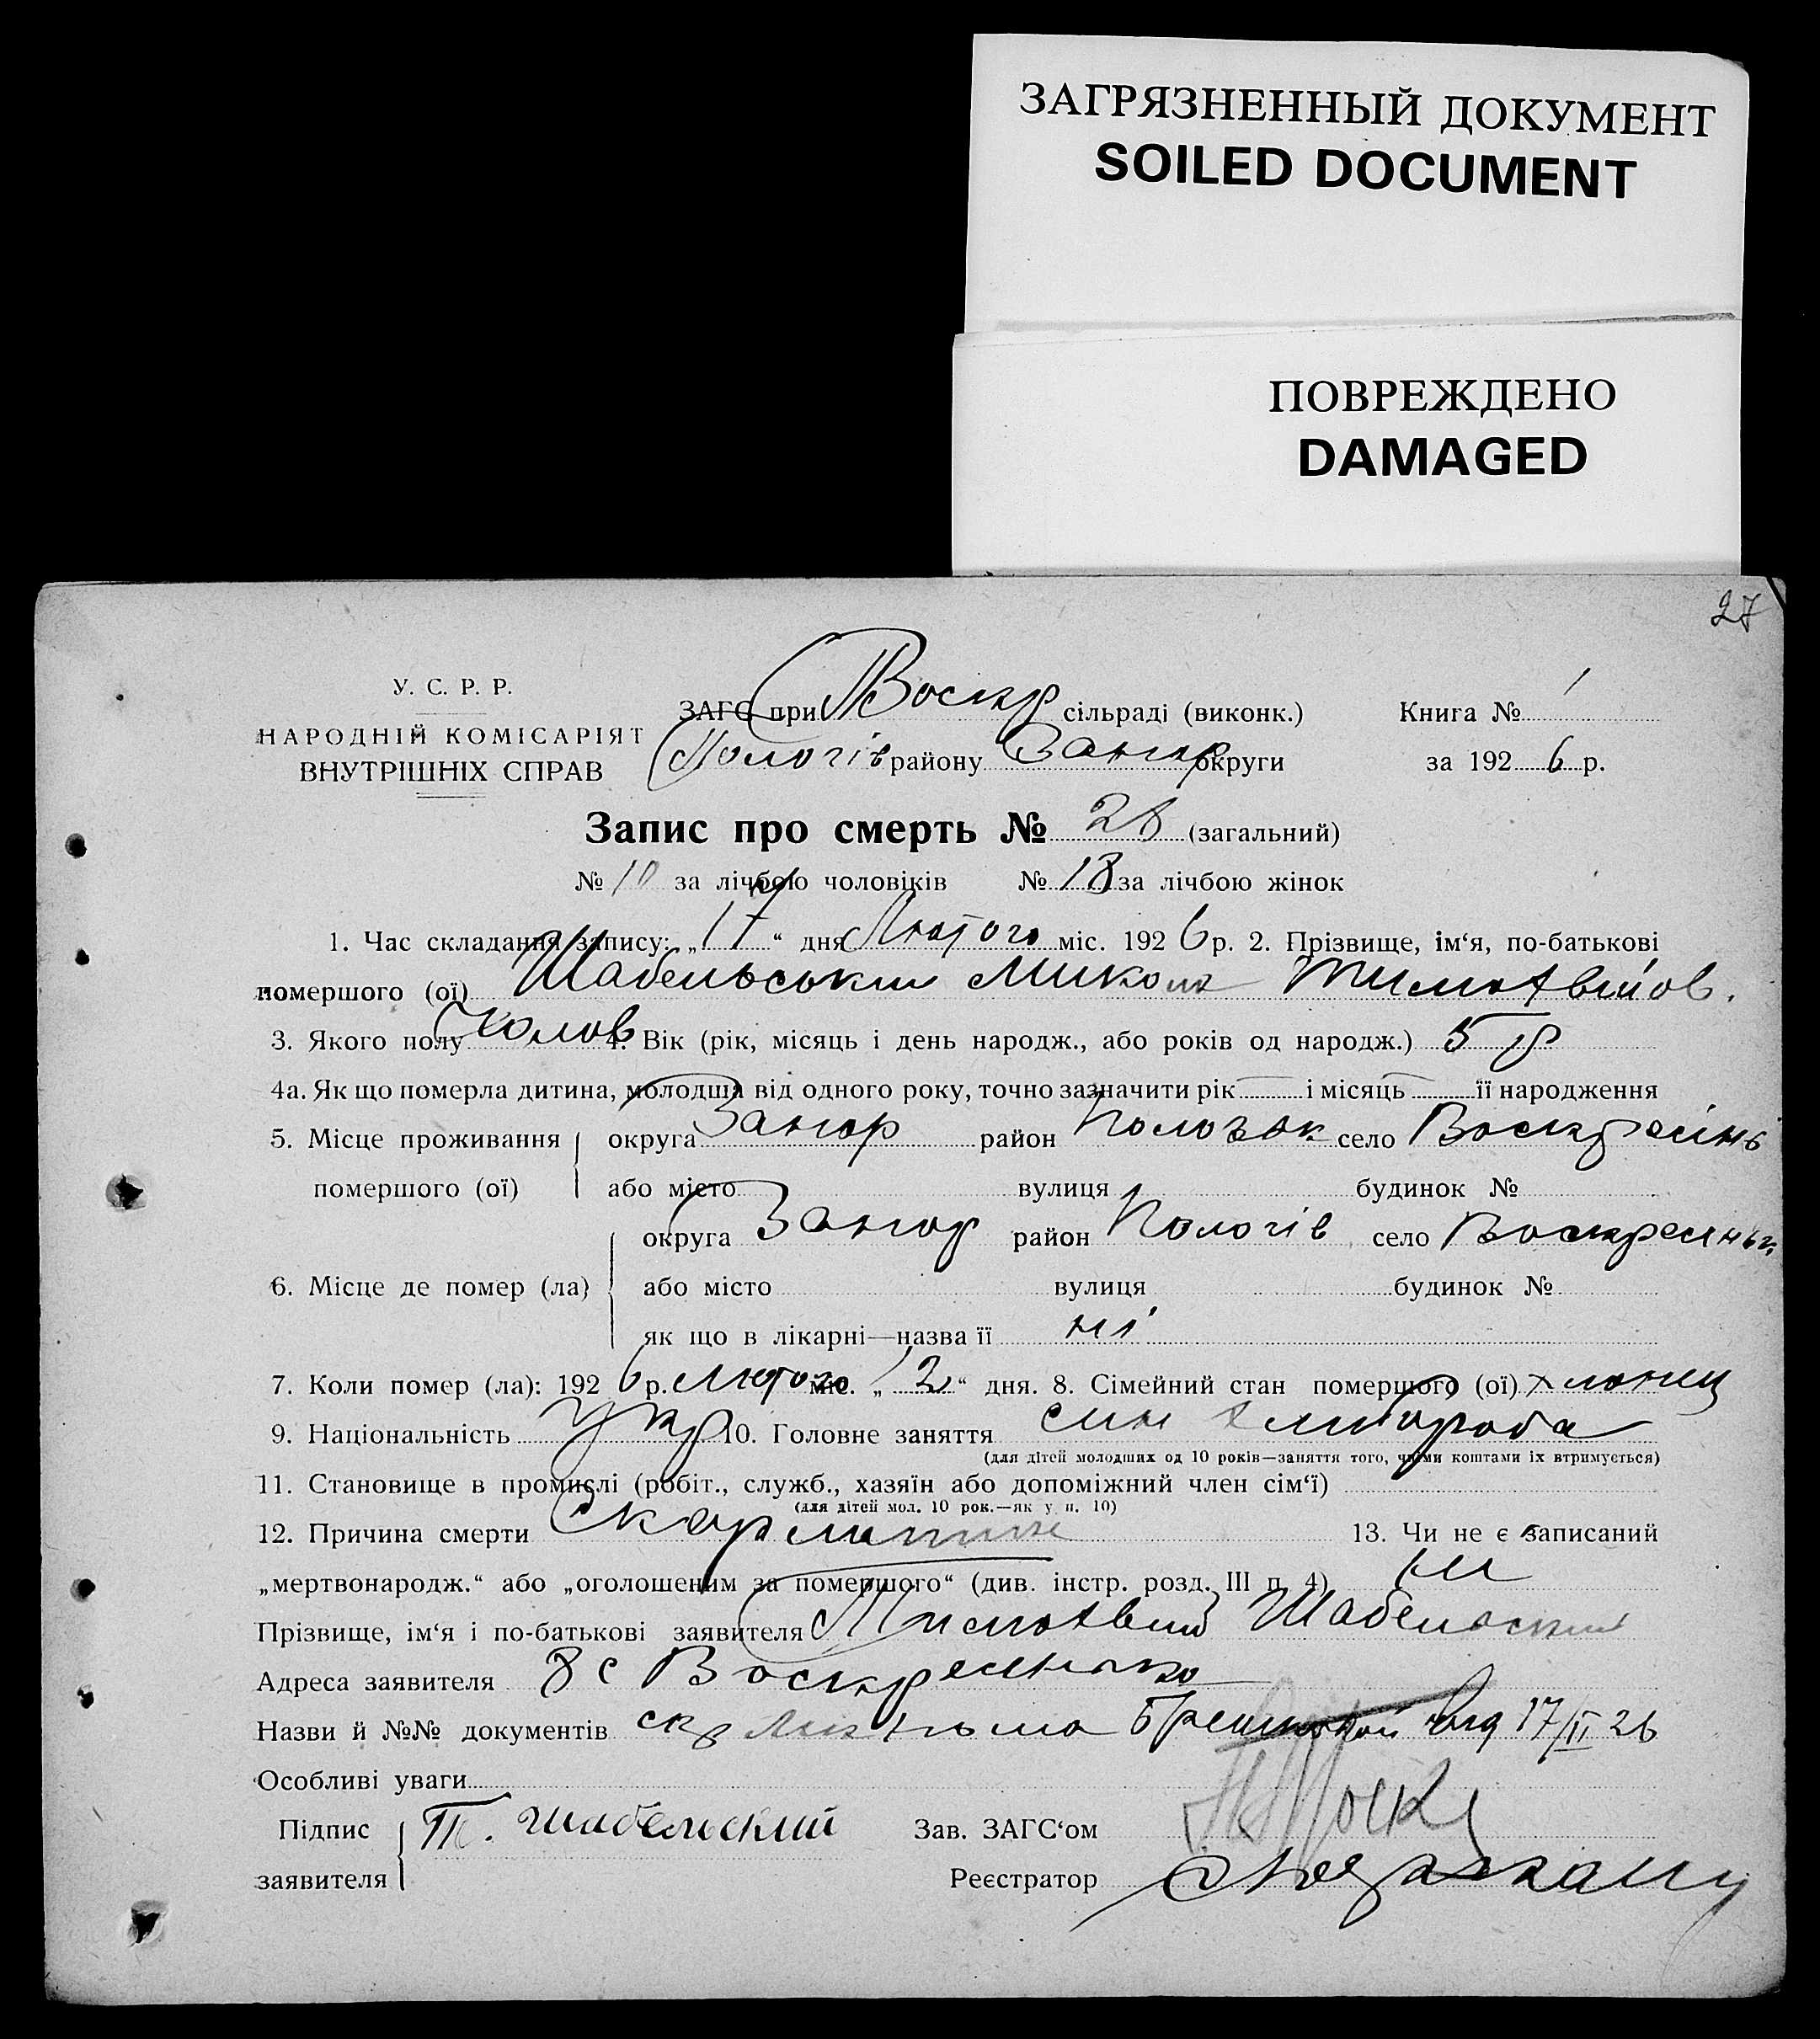 ЗАГРЯЗНЕННЫЙ ДОКУМЕНТ
SOILED DOCUMENT
ПОВРЕЖДЕНО
DAMAGED
27
У. С. Р. Р.
НАРОДНІЙ КОМІСАРІЯТ
ВНУТРІШНІХ СПРАВ
ЗАГС при Воскр сільраді (виконк.) Книга № 1
Пологів району Запор округи за 1926 р.
Запис про смерть № 28 (загальний)
№ 10 за лічбою чоловіків № 18 за лічбою жінок
1. Час складання запису: „17“ дня Лютого міс. 1926 р. 2. Прізвище, ім‘я, по-батькові
помершого (ої) Шабельський Микола Тимофвийов.
3. Якого полу Чолов 4. Вік (рік, місяць і день народж., або років од народж.) 5 р
4а. Як що померла дитина, молодша від одного року, точно зазначити рік і місяць її народження
5. Місце проживання округа Запор район село
помершого (ої) або місто вулиця будинок №
округа Запор район Пологів село
6. Місце де помер (ла) або місто вулиця будинок №
як що в лікарні—назва її ні
7. Коли помер (ла): 1926 р. Лютого міс. „12“ дня. 8. Сімейний стан помершого (ої) хлопец
9. Національність Укр 10. Головне заняття син хлибороба
(для дітей молодших од 10 років—заняття того, чиїми коштами їх втримується)
11. Становище в промислі (робіт., служб., хазяїн або допоміжний член сім‘ї)
(для дітей мол. 10 рок.—як у п. 10)
12. Причина смерти Скарлатина 13. Чи не є записаний
„мертвонародж.“ або „оголошеним за помершого“ (див. інстр. розд. III п. 4) ні
Прізвище, ім‘я і по-батькові заявителя Тимофвий Шабельский
Адреса заявителя с Воскресенька
Назви й №№ документів 17/II 26
Особливі уваги
Підпис заявителя Т. Шабельский Зав. ЗАГС‘ом
Реєстратор